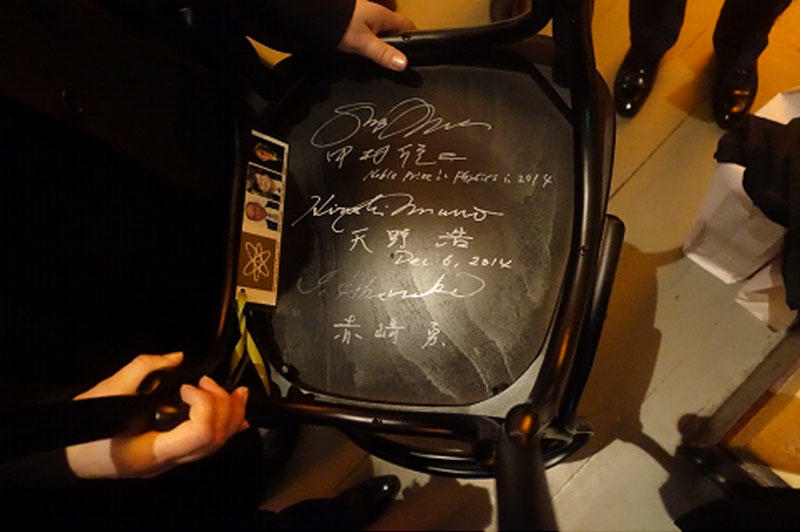 中村修二
Noble Prize in Physics in 2014
Hiroshi Amano
天野 浩
Dec. 6, 2014
I. Akasaki
赤﨑 勇